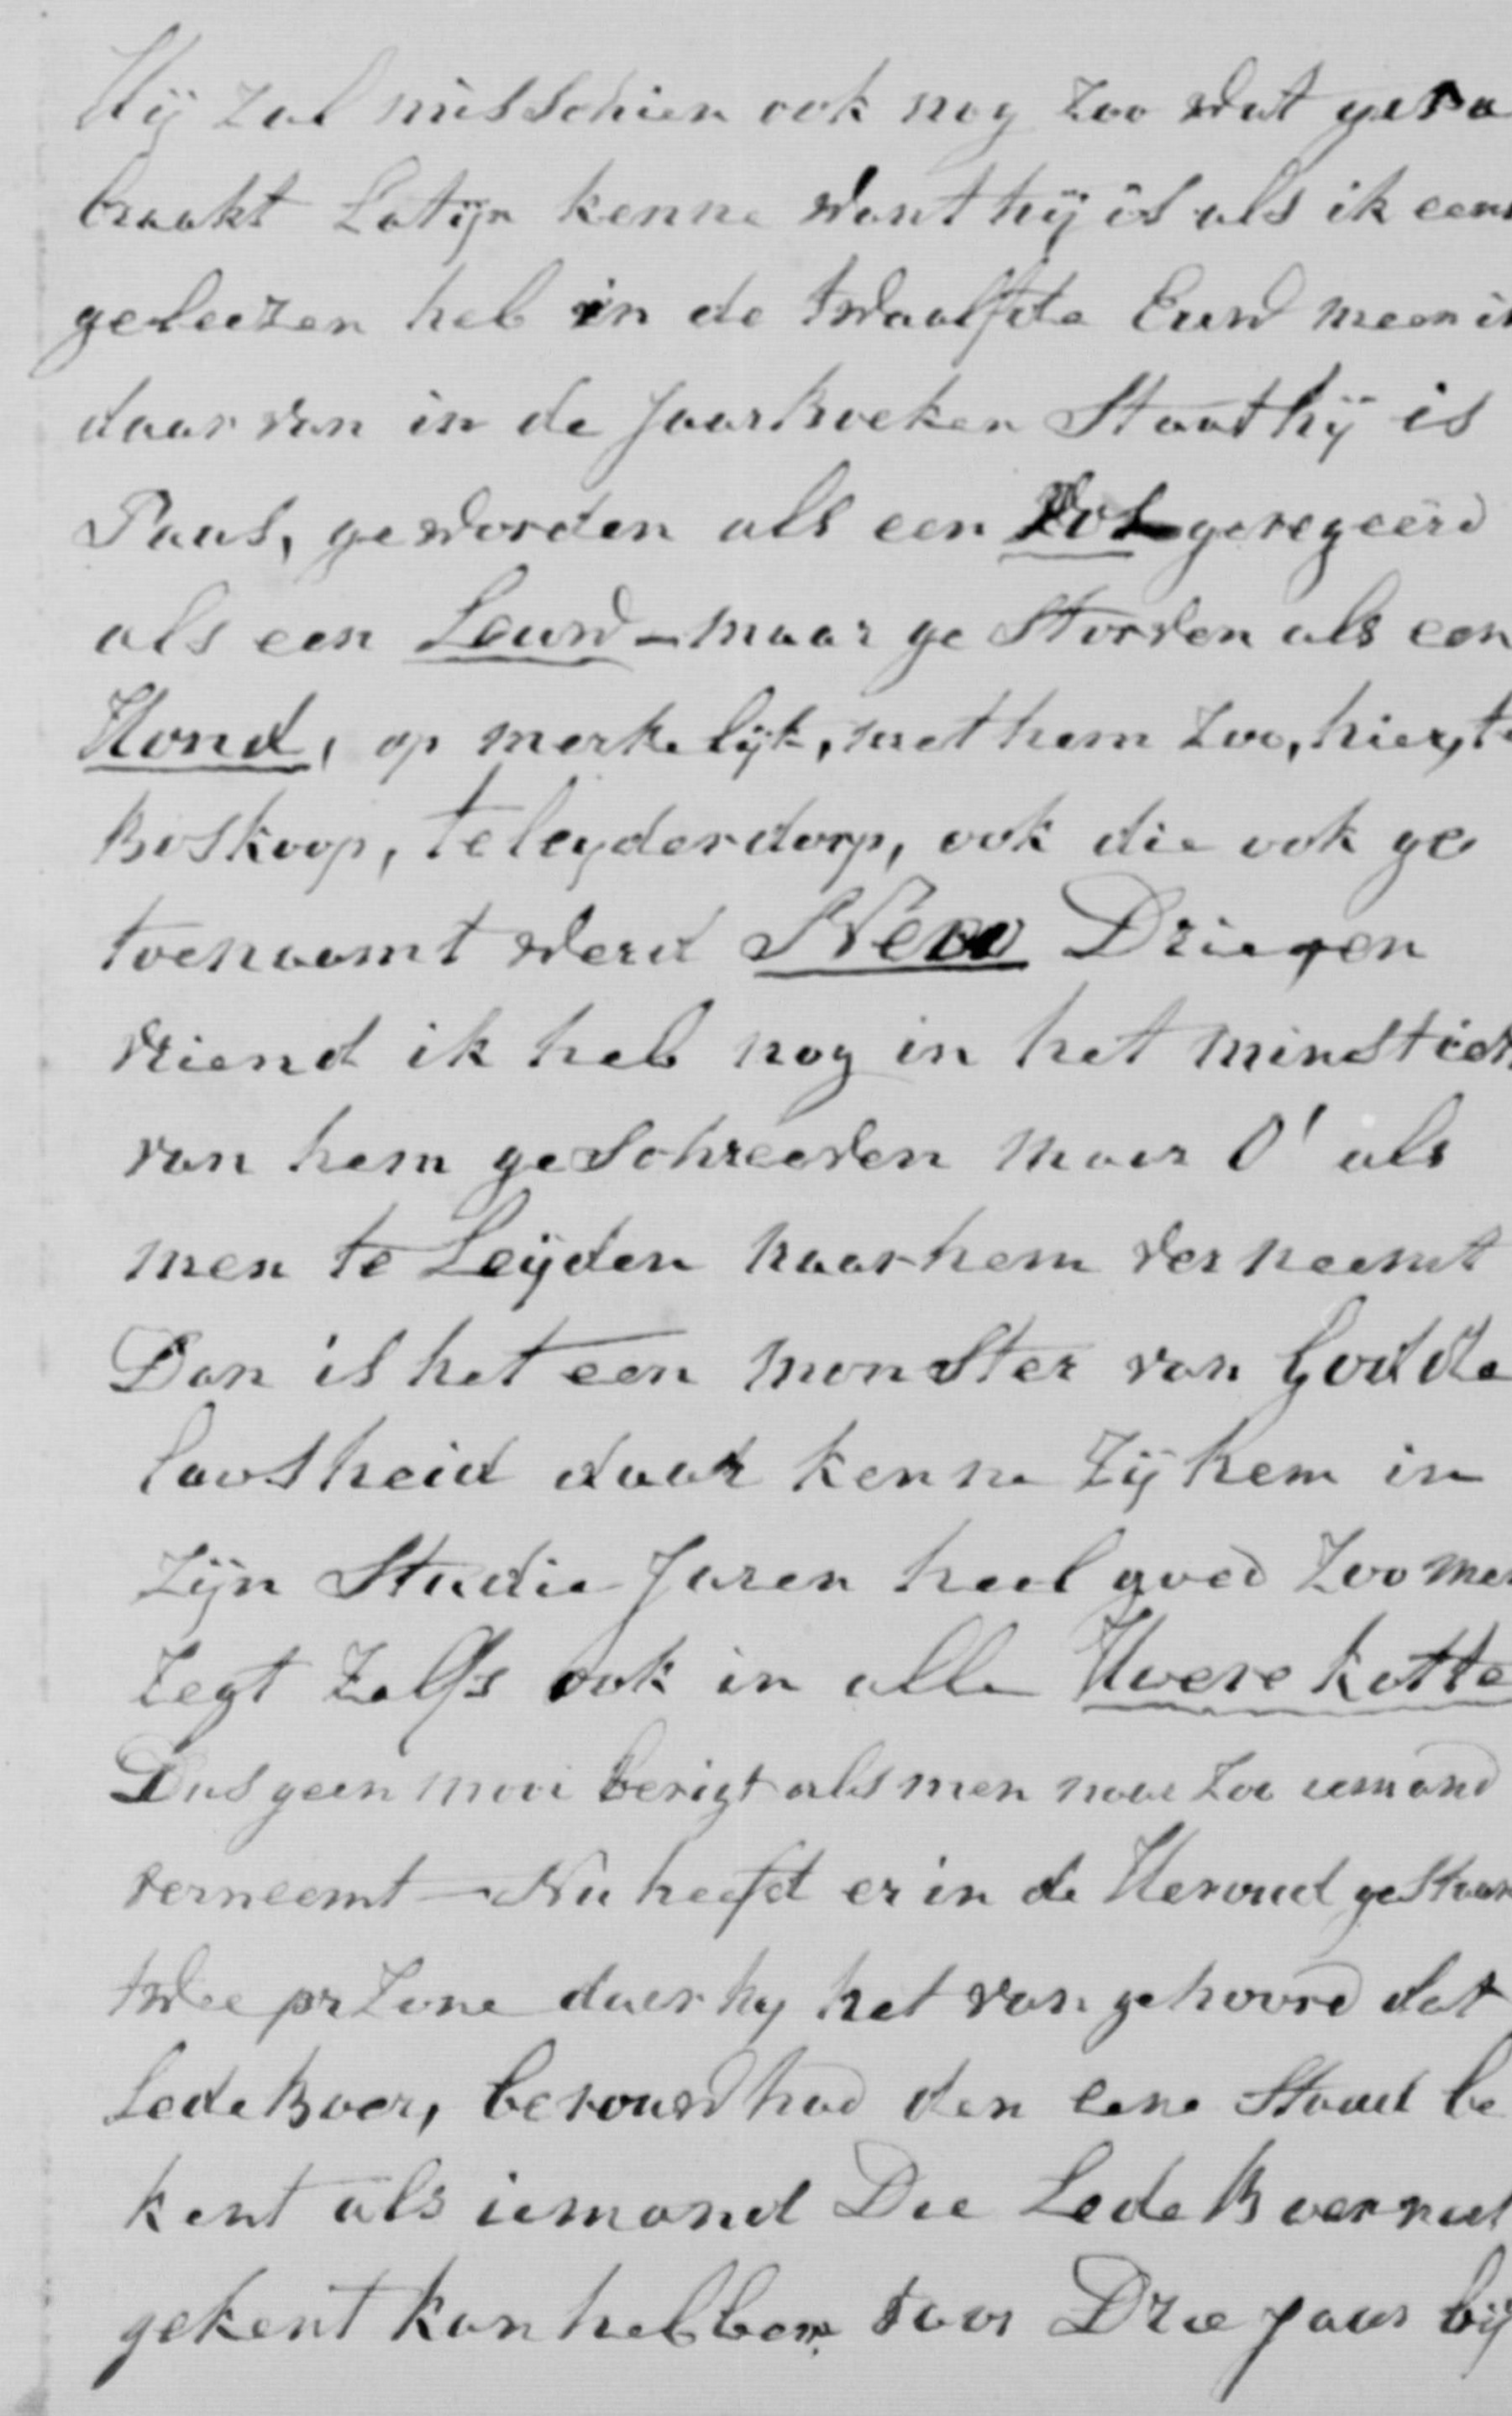 Hij zal misschien ook nog zoo wat gera
braakt Latijn kenne want hij is als ik eens
geleezen heb in de twaalfde Eeuw meen ik
daar van in de Jaarboeken Staat hij is
Paus, geworden als een Vos geregeerd
als een Leuw – maar ge Storven als een
Hond, op merkelijk, met hem zoo, hier, te
Boskoop, te leyderdorp, ook die ook ge
toenaamt werd Nero Driegen
vriend ik heb nog in het minst iets
van hem geschreeven maar O' als
men te Leijden naar hem verneemt
Dan is het een monster van Godde
loosheid daar kenne zij hem in
zijn Studie Jaren heel goed zoo men
zegt zelfs ook in alle Hoere kotte
Dus geen mooi berigt als men naar zoo iemand
verneemt – Nu heeft er in de Heraud gestaan
twee przone daer hy het van gehoord dat
LedeBoer, berouw had den eene Staad be
kent als iemand Die LedeBoer niet
gekent kan hebben voor Drie Jaar bij